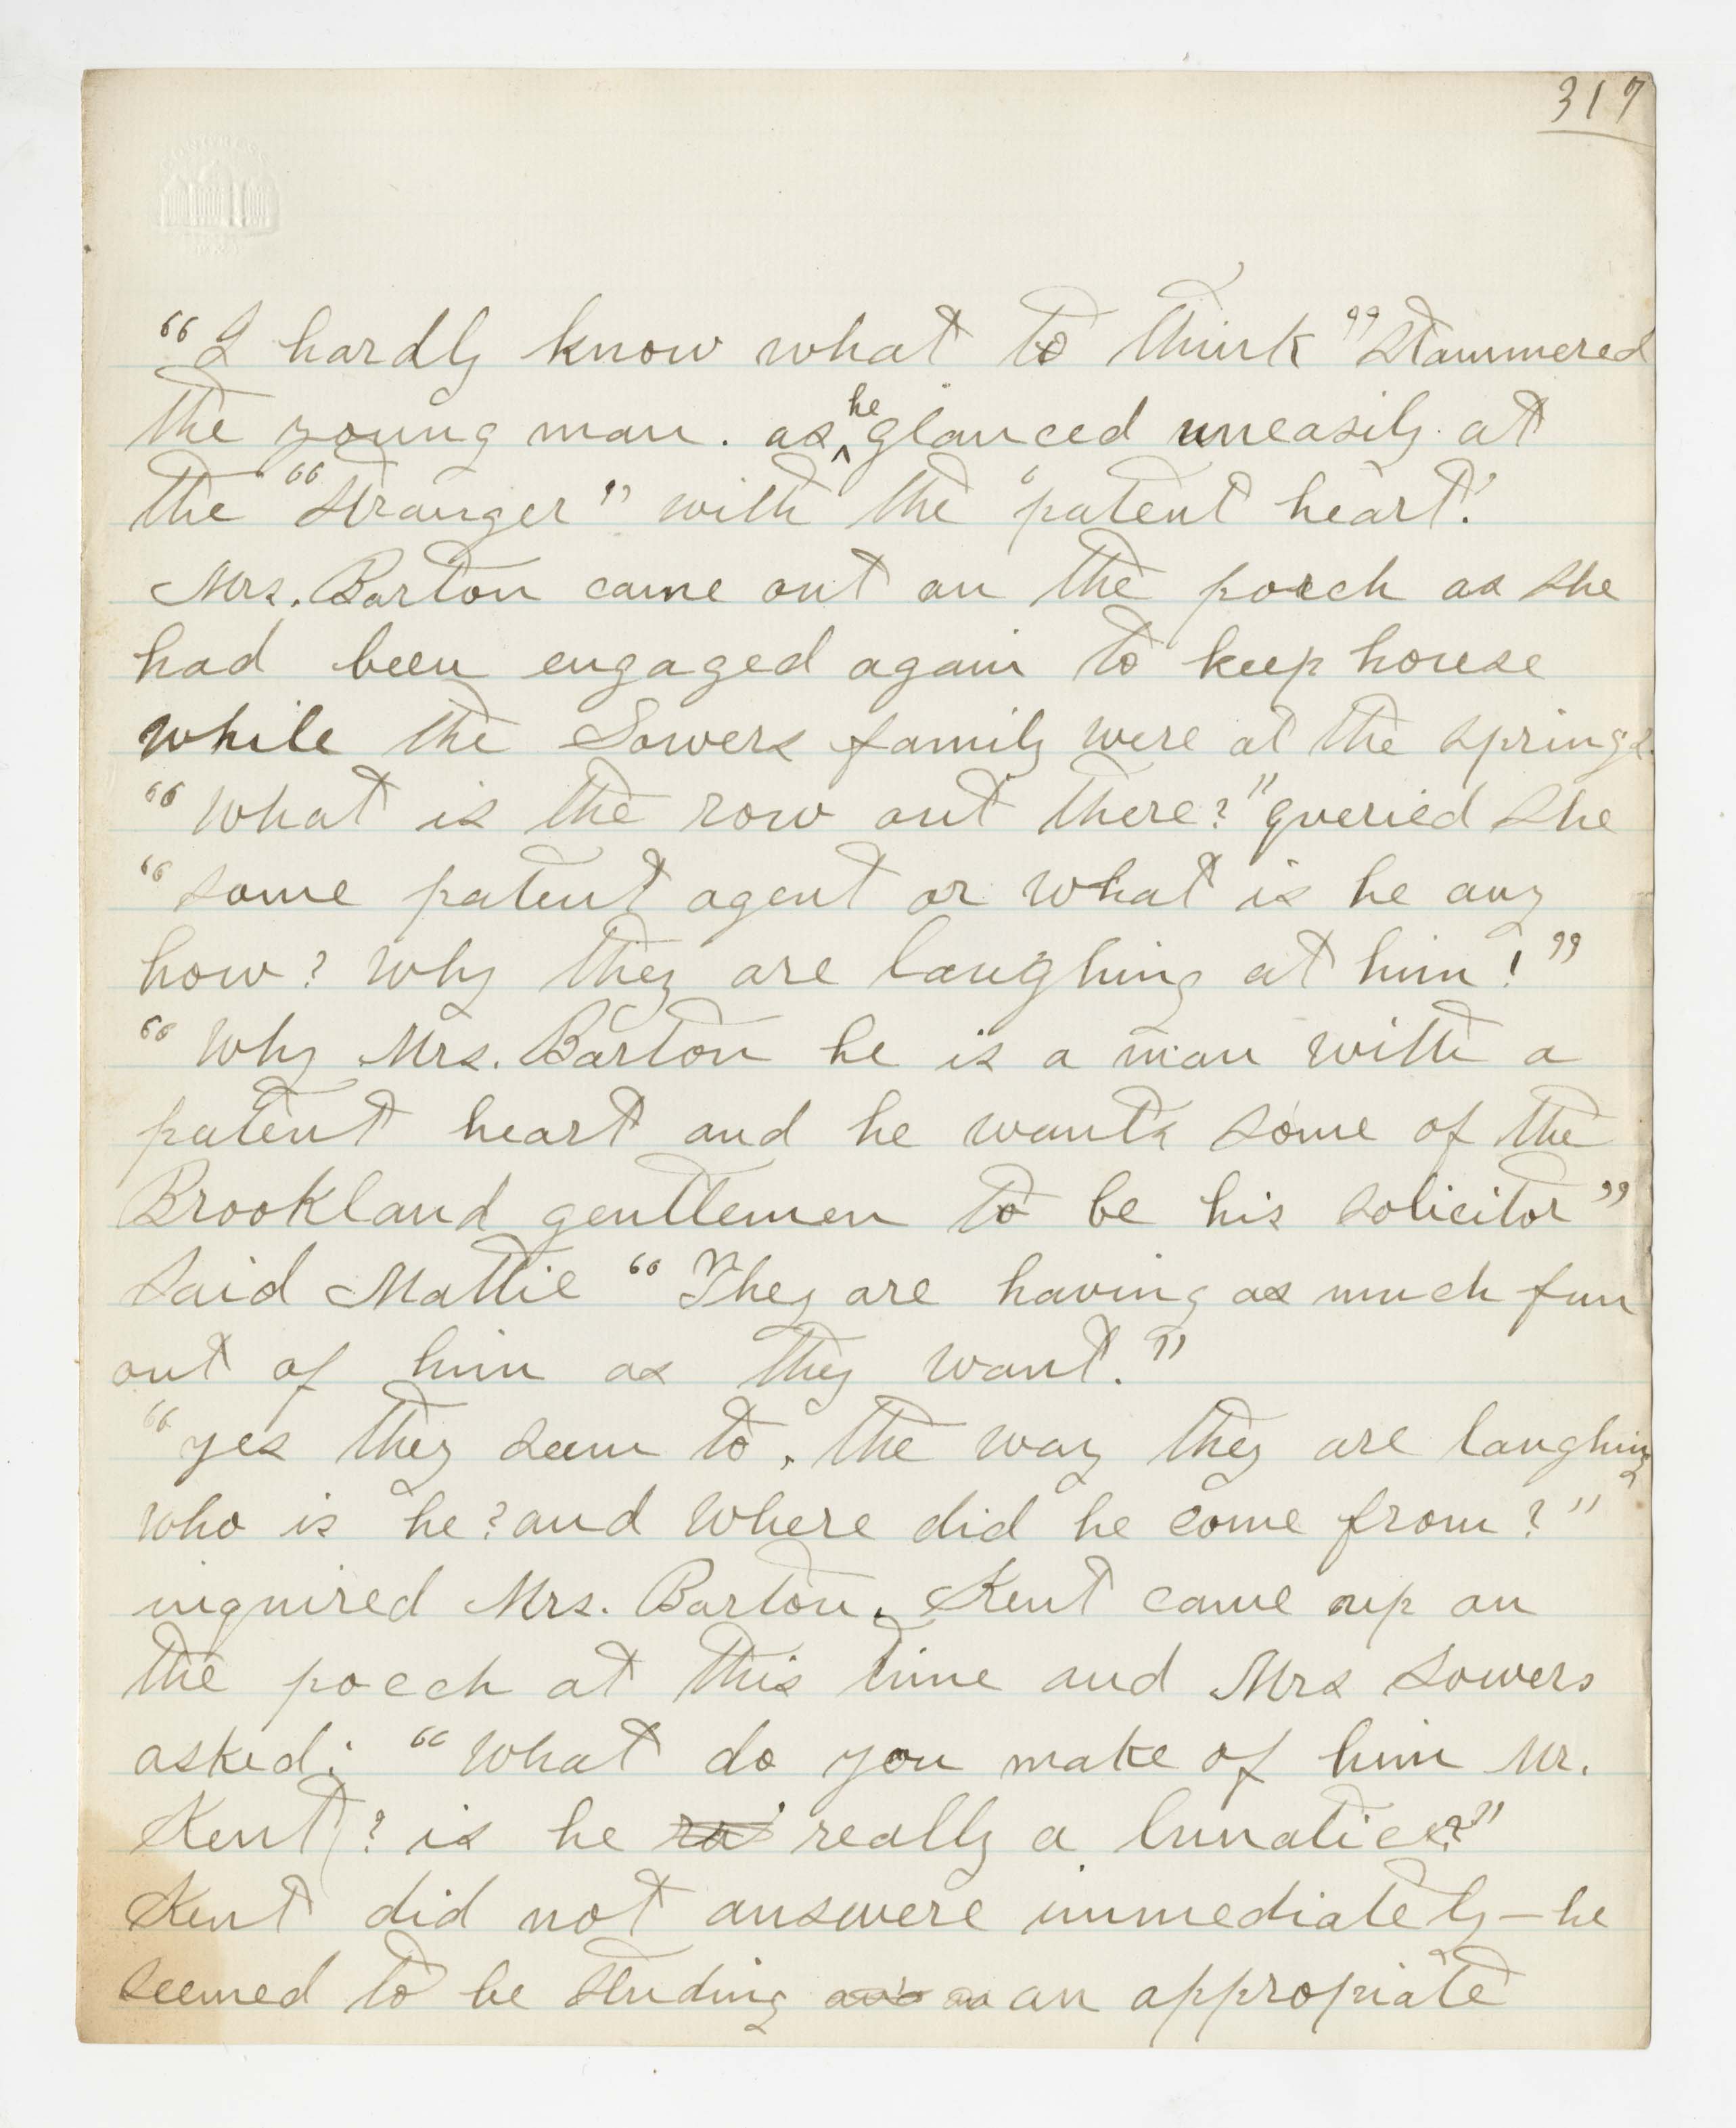 317
CONGRESS
"I hardly know what to think" stammered
the young man. as he glanced uneasily at
the "stranger" with the 'patent heart.'
Mrs. Barton came out on the porch as she
had been engaged again to keep house
while the Sowers family were at the springs.
"What is the row out there?" queried she
"some patent agent or what is he any
how? Why they are laughing at him!"
"Why Mrs. Barton he is a man with a
patent heart and he wants some of the
Brookland gentlemen to be his solicitor"
said Mattie "They are having as much fun
out of him as they want."
"yes they seem to, the way they are laughing
who is he? and where did he come from?"
inquired Mrs. Barton. Kent came up on
the poech at this time and Mrs Sowers
asked: "What do you make of him Mr.
Kent? is he ra really a lunatic?"
Kent did not answere immediately – he
seemed to be studing an appropiate